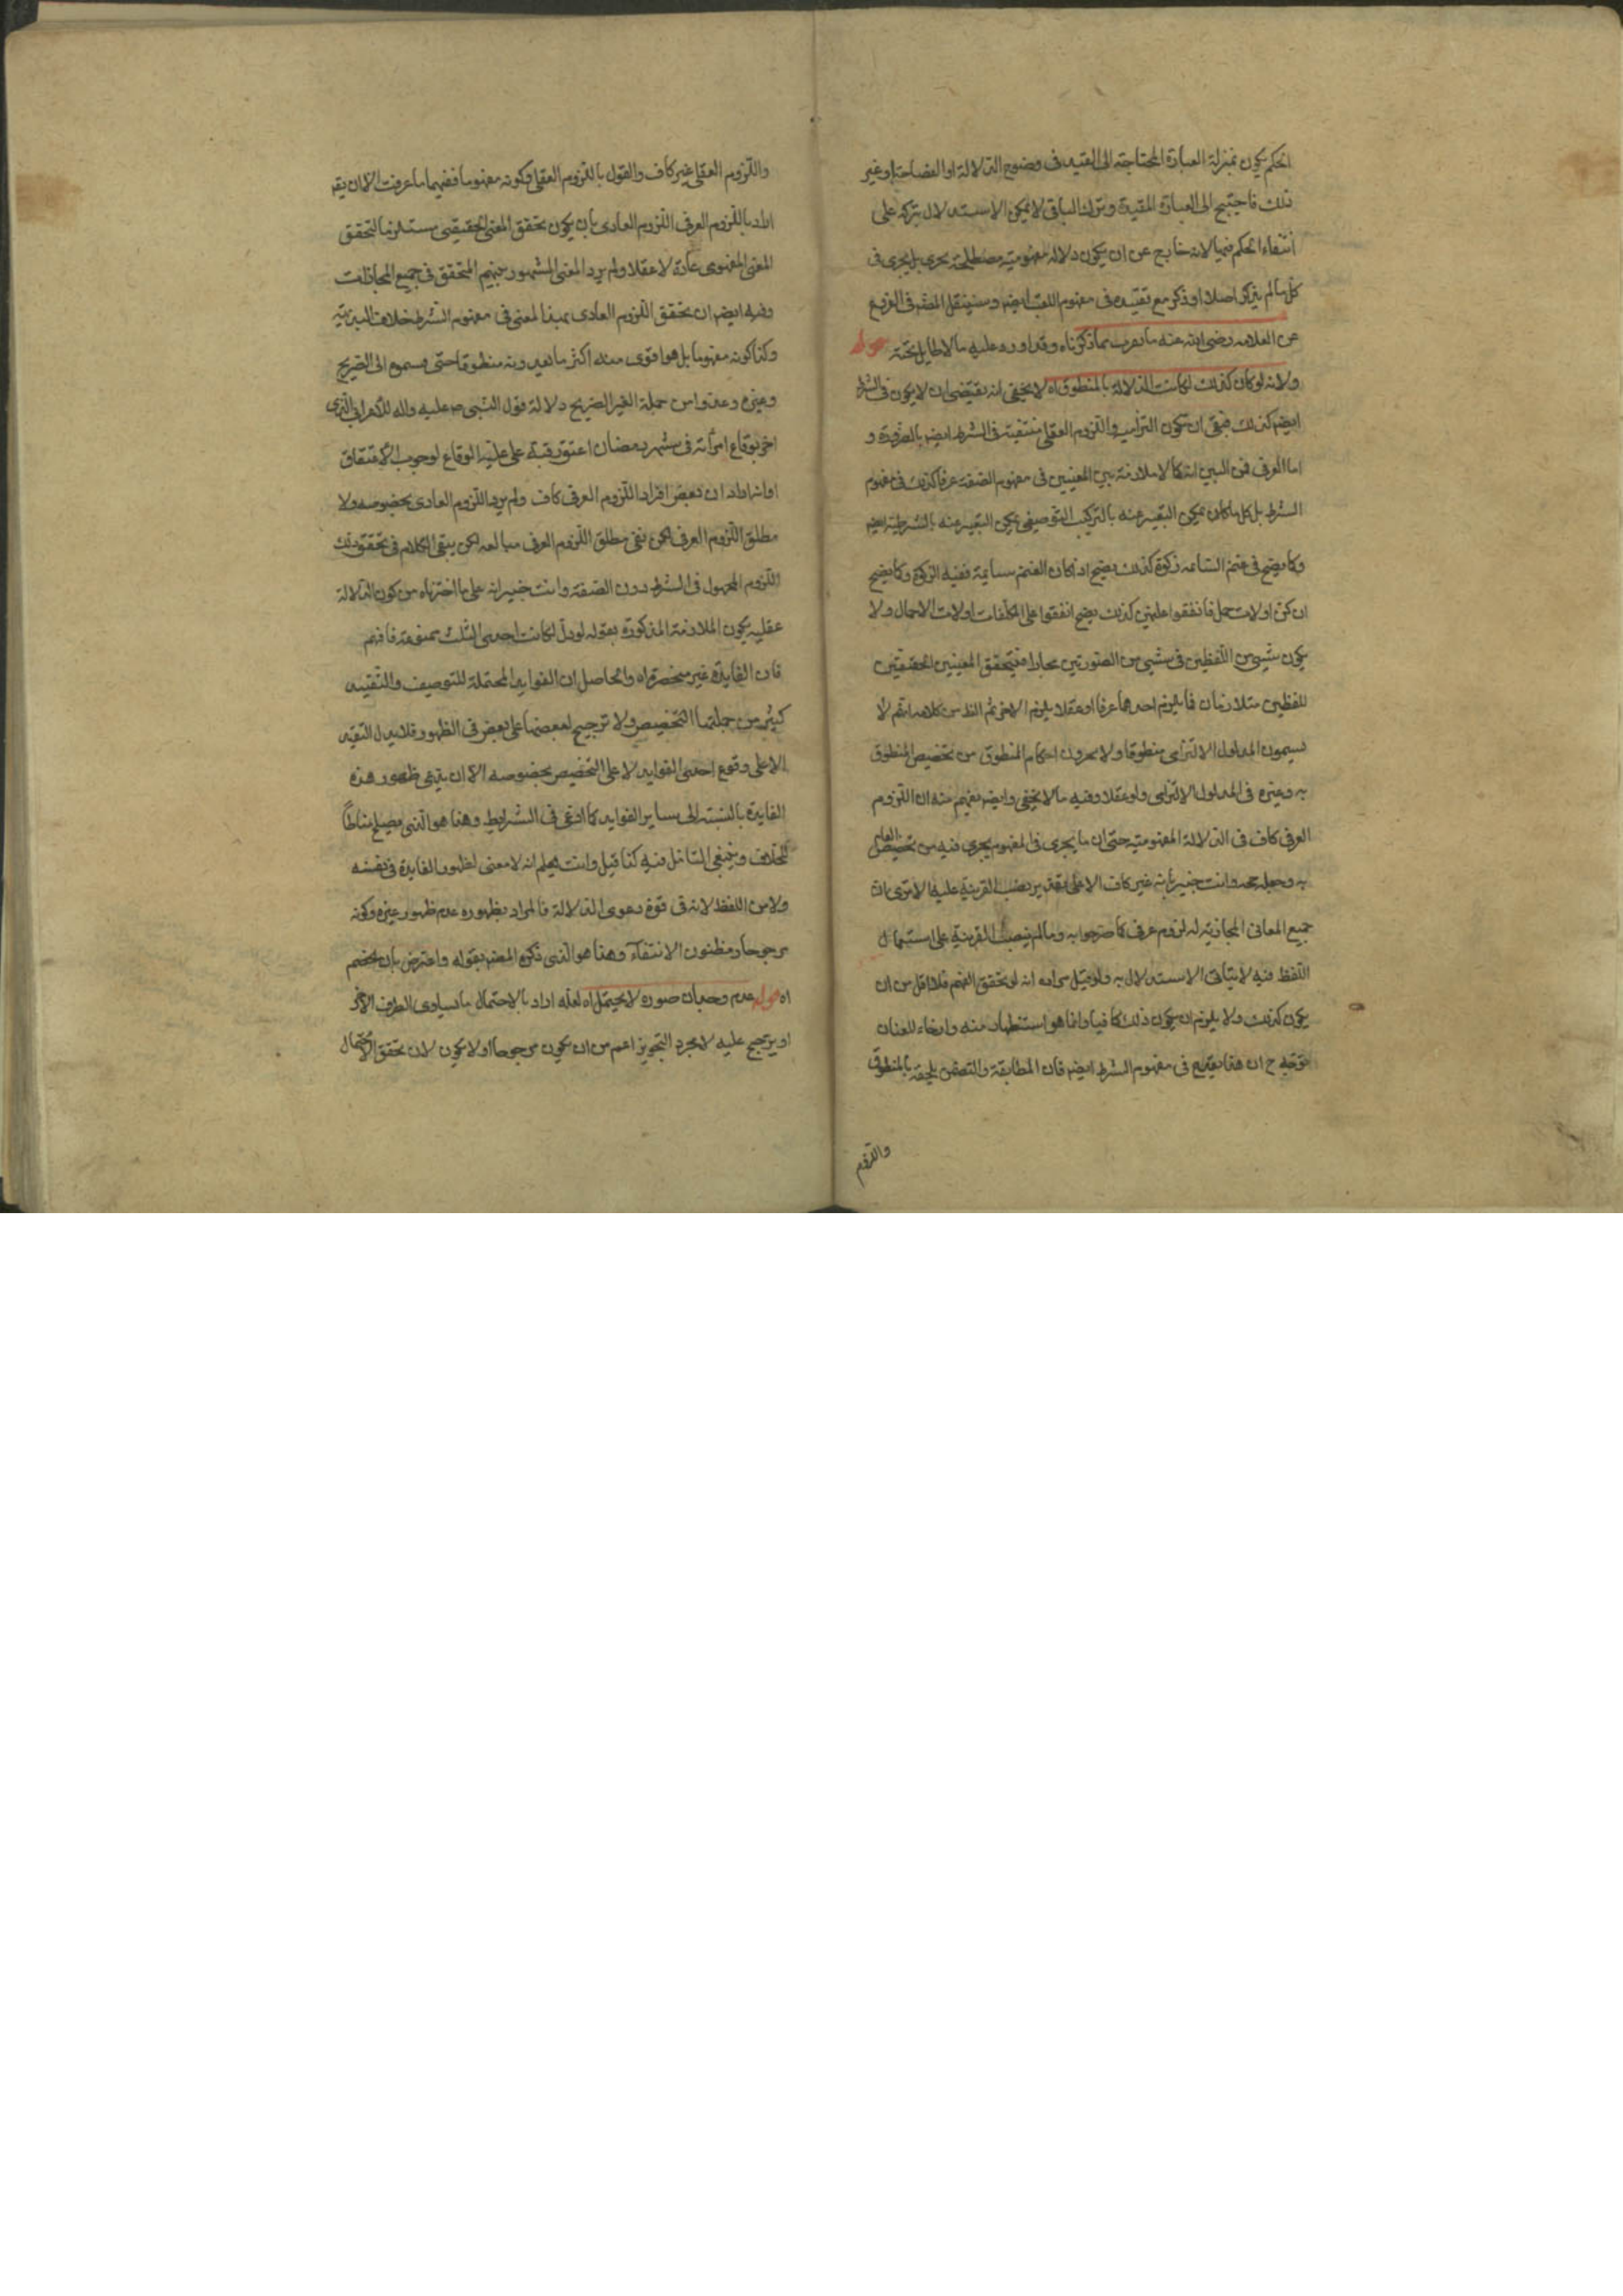 الحكم يكون بمنزلة العبارة المحتاجة الى القيد فى وضوح الدلالة او الفصاحة او غير
ذلك فاحتيج الى العبارة المقيدة وترك الباقى لا يمكن الاستدلال بتركه على
انتفاء الحكم فيها لانه خارج عن ان يكون دلالة مفهومية مصطلحة بل يجرى فى
كل ما لم يذكر اصلا او ذكر مع تقييده فى مفهوم اللقب ايضا وسينقل المصـ فى الفروع
عن العلامه رضى الله عنه ما يقرب مما ذكرناه وقد اورد عليه ما لا طايل تحته قوله
ولانه لو كان كذلك لكانت الدلالة بالمنطوق اه لا يخفى انه يقتضى ان لا يكون فى الشرط
ايضا كذلك فبقى ان تكون التزامية واللزوم العقلى منتفية فى الشرط ايضا بالضرورة و
اما العرفى فمن البين انه كما لا ملازمة بين المعنيين فى مفهوم الصفة عرفا كذلك فى مفهوم
الشرط بل كل ما كان يمكن التعبير عنه بالتركيب التوصيفى يمكن التعبير عنه بالشرطية ايضا
وكما يصح فى غنم السائمه زكوة كذلك يصح اذا كان الغنم سايمة ففيه الزكوة وكما يصح
ان كن اولات حمل فانفقوا عليهن كذلك يصح انفقوا على المطلقات اولات الاحمال ولا
يكون شىء من اللفظين فى شىء من الصورتين مجازا فيتحقق المعنيين الحقيقيين
للفظين متلازمان فما يلزم احدهما عرفا او عقلا يلزم الاخر ثم الظ من كلامه انهم لا
يسمون المدلول الالتزامى منطوقا ولا يجرون احكام المنطوق من تخصيص المنطوق
به وغيره فى المدلول الالتزامى ولو عقلا وفيه ما لا يخفى وايضا يفهم منه ان اللزوم
العرفى كاف فى الدلالة المفهومية حتى ان ما يجرى فى المفهوم يجرى فيه من تخصيص العام
به وجعله حجة وانت خبير بانه غير كاف الا على تقدير نصب القرينة عليه الا ترى ان
جميع المعانى المجازية له لزوم عرفى كما صرحوا به وما لم ينصب القرينة على استعمال
اللفظ فيه لا يتأتى الاستدلال به ولو قيل مراده انه لو تحقق الفهم فلا اقل من ان
يكون كذلك ولا يلزم ان يكون ذلك كافيا وانما هو استظهار منه وارخاء للعنان
توجه ح ان هذا يقدح فى مفهوم الشرط ايضا فان المطابقة والتضمن يلحقه بالمنطوق
واللزوم
واللزوم العقلى غير كاف والقول باللزوم العقلى وكونه مفهوما ففيهما ما عرفت الا ان يقـ
اراد باللزوم العرفى اللزوم العادى بان يكون تحقق المعنى الحقيقى مستلزما لتحقق
المعنى المفهومى عادة لا عقلا ولم يرد المعنى المشهور بينهم المتحقق فى جميع المجازات
وفيه ايضا ان تحقق اللزوم العادى بهذا المعنى فى مفهوم الشرط خلاف البديهة
وكذا كونه مفهوما بل هو اقوى منه اكثر ما يعدونه منطوقا حتى قسموه الى الصريح
وغيره وعدوا من جملة الغير الصريح دلالة قول النبى صـ عليه واله للاعرابى الذى
اخبر بوقاع امرأته فى شهر رمضان اعتق رقبة على علية الوقاع لوجوب الاعتاق
او انه اراد ان بعض افراد اللزوم العرفى كاف ولم يرد اللزوم العادى بخصوصه ولا
مطلق اللزوم العرفى لكن نفى مطلق اللزوم العرفى مبالغه لكن يبقى الكلام فى تحقق ذلك
اللزوم المجهول فى الشرط دون الصفة وانت خبير انه على ما اخترناه من كون الدلالة
عقلية يكون الملازمة المذكورة بقوله لو دل لكانت احدى الثلث ممنوعة فافهم
فان الفايدة غير منحصرة اه والحاصل ان الفوايد المحتملة للتوصيف والتقييد
كثير من جملتها التخصيص ولا ترجيح لبعضها على بعض فى الظهور فلا يدل التقييد
الا على وقوع احدى الفوايد لا على التخصيص بخصوصه الا ان يدعى ظهور هذه
الفايدة بالنسبة الى ساير الفوايد كما ادعى فى الشرايط وهذا هو الذى يصلح مناطاً
للخلاف وينبغى التامل فيه كذا قيل وانت تعلم انه لا معنى لظهور الفايدة فى نفسه
ولا من اللفظ لانه فى قوة دعوى الدلالة فالمراد بظهوره عدم ظهور غيره وكونه
مرجوحا ومظنون الانتفاء وهذا هو الذى ذكره المصـ بقوله واعترض بان الخصم
اه قوله عدم وجدان صورة لا يحتمل اه لعله اراد بالاحتمال ما يساوى الطرف الاخر
او يرجح عليه لا مجرد التجويز اعم من ان يكون مرجوحا او لا يكون لان تحقق الاحتمال